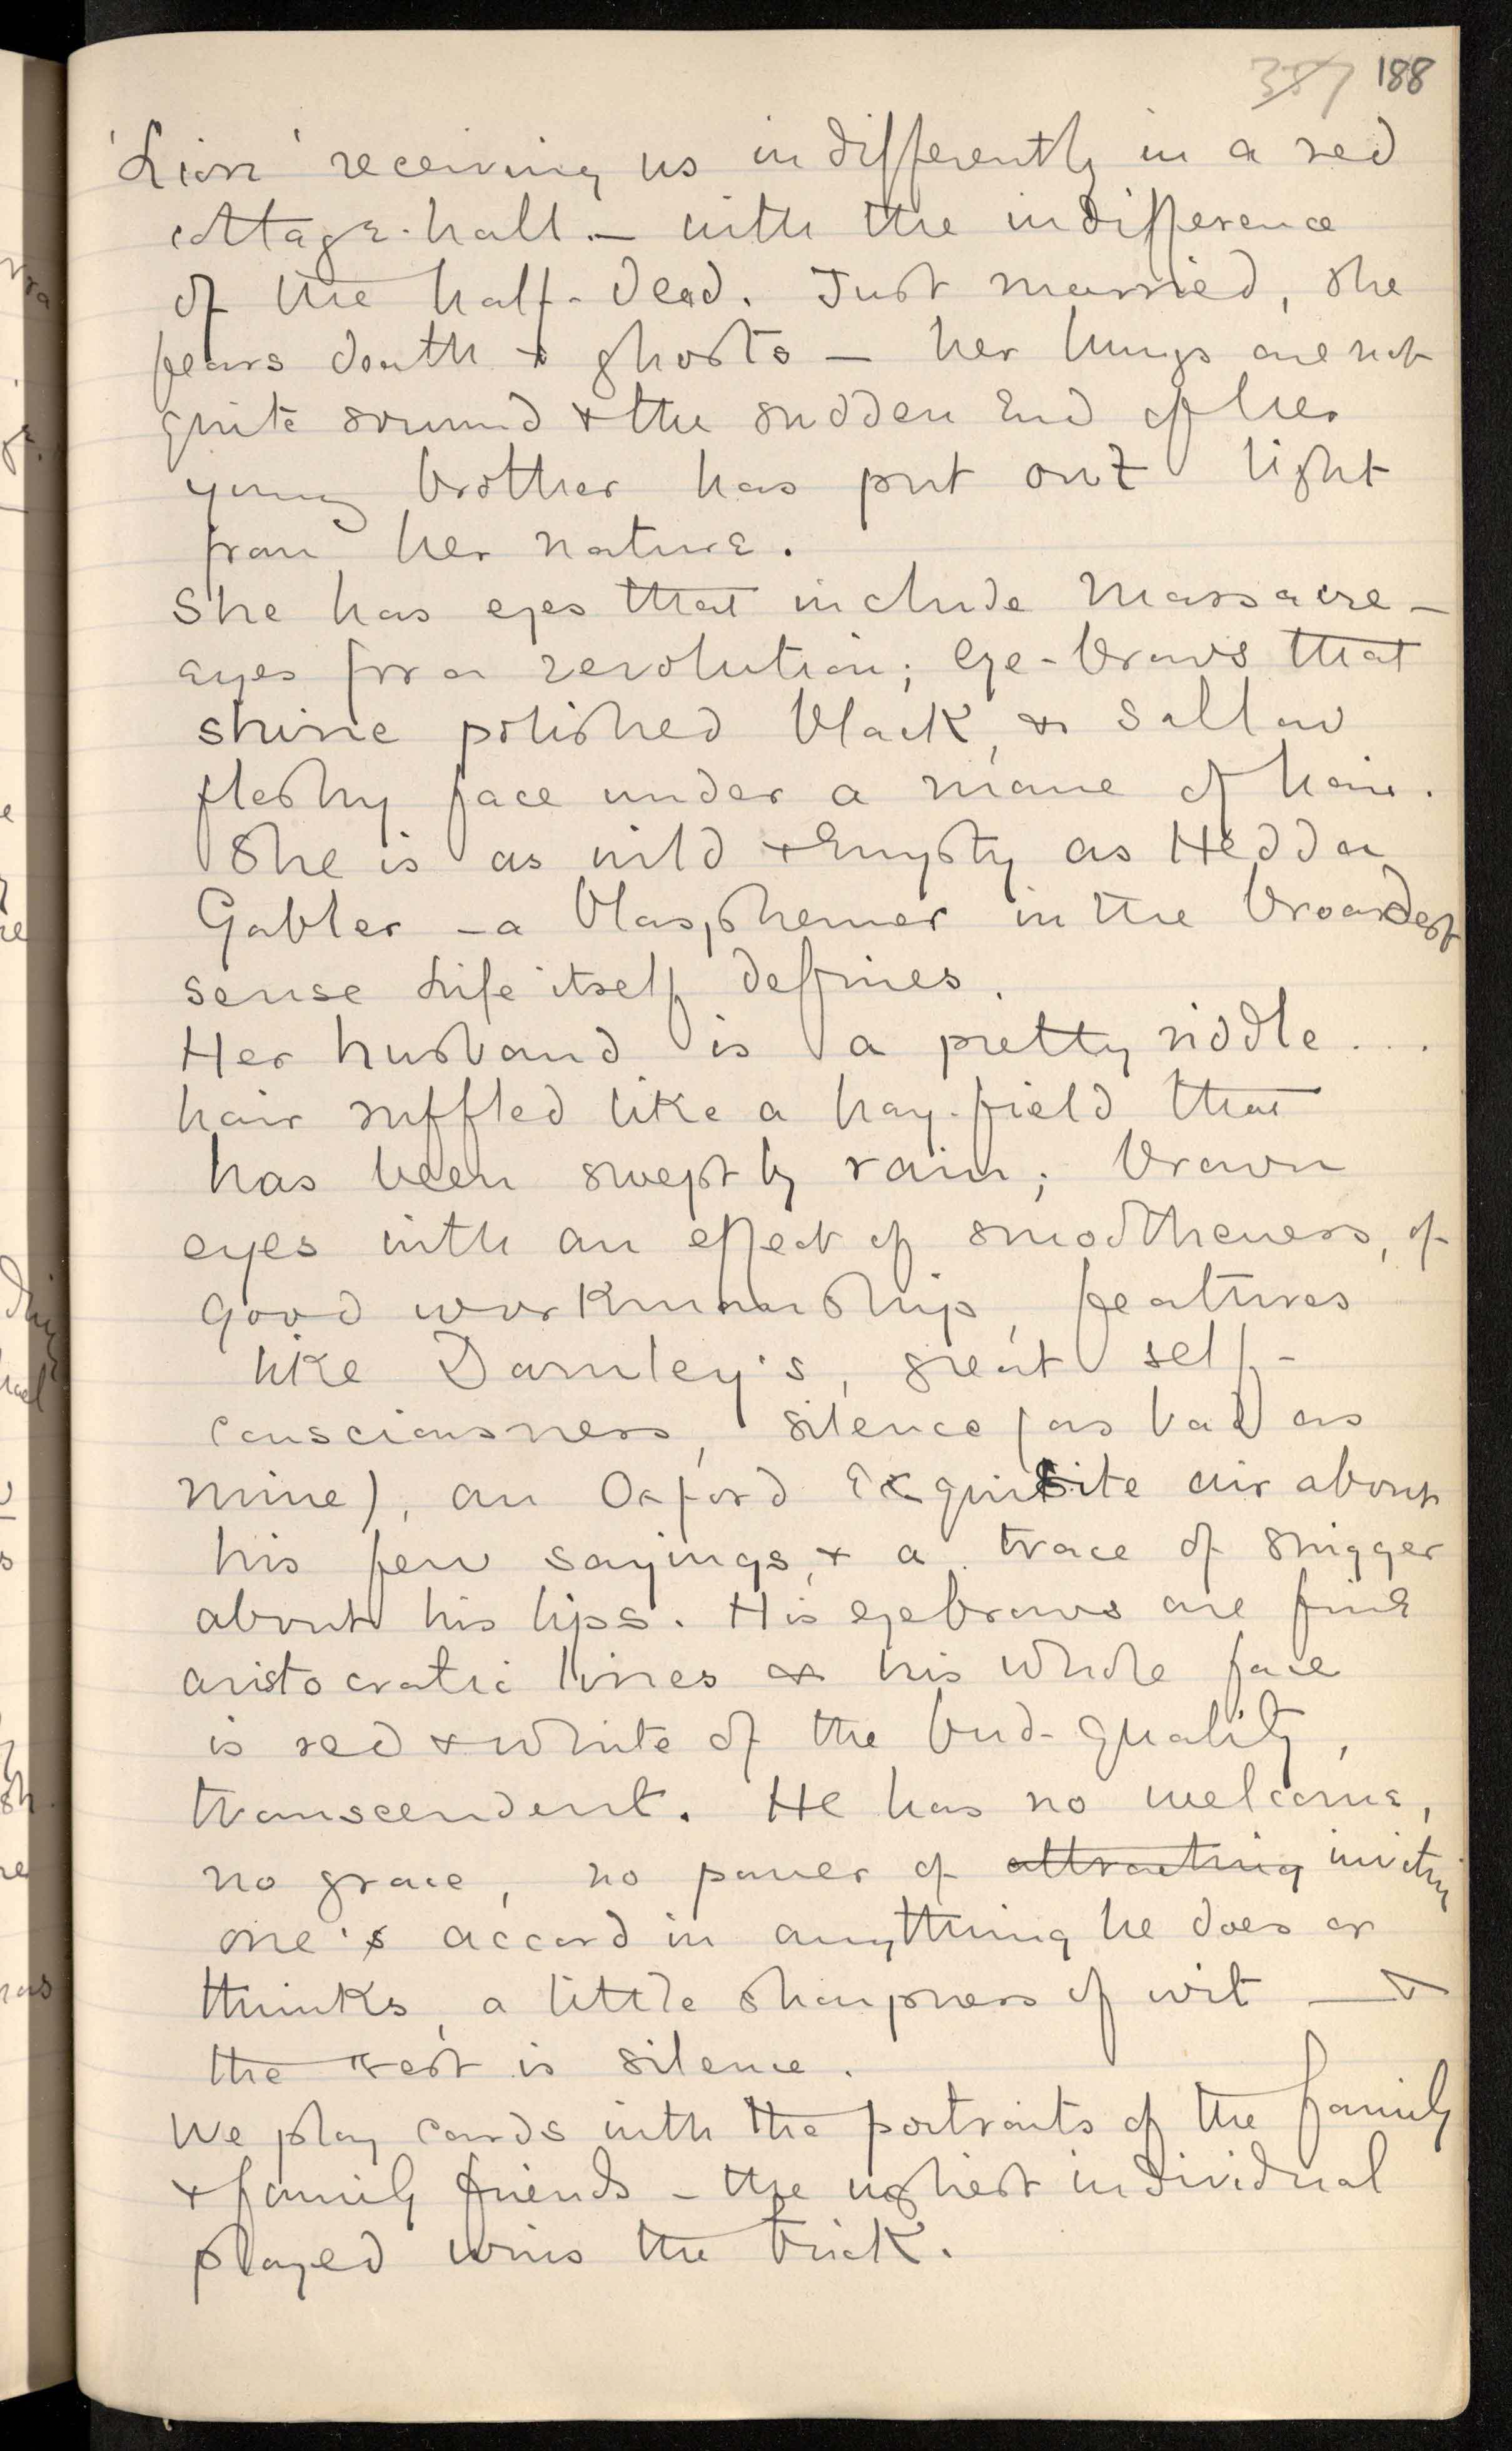 387 188
'Lion' receiving us indifferently in a red
cottage-hall. — with the indifference
of the half-dead. Just married, she
fears death & ghosts — her lungs are not
quite sound & the sudden end of her
young brother has put out light
from her nature.
She has eyes that include massacre —
eyes for a revolution; eye-brows that
shine polished black, & sallow
fleshy face under a mane of hair.
She is as wild & empty as Hedda
Gabler — a blasphemer in the broadest
sense Life itself defines.
Her husband is a pretty riddle...
hair ruffled like a hay-field that
has been swept by rain; brown
eyes with an effect of smootheness, of
good workmanship, features
like Darnley's, great self-
consciousness, silence (as bad as
mine), an Oxford Exquisite air about
his few sayings, & a trace of snigger
about his lips. His eyebrows are fine
aristocratic lines & his whole face
is red & white of the bud-quality,
transcendent. He has no welcome,
no grace, no power of attracting inviting
one's accord in anything he does or
thinks, a little sharpness of wit — &
the rest is silence.
We play cards with the portraits of the family
& family friends — the ugliest individual
played wins the trick.